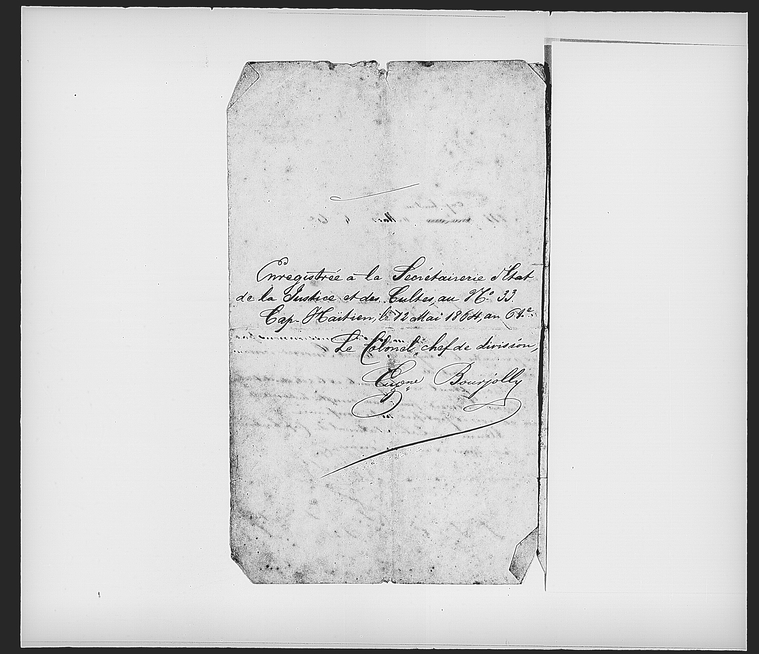 Enregistrée à la Secrétairerie d'Etat
de la Justice et des Cultes, au No. 33.
Cap-Haïtien, le 12 Mai 1864, an 61e.
Le Colonel, chef de division,
Eugne Bourjolly